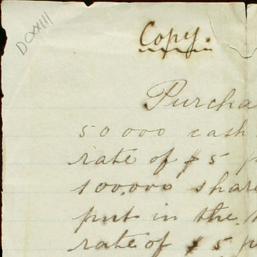 DCXXIII
Copy.
Purcha
50000 cash
rate of $5 p
100,000 share
put in the
rate of $5 p